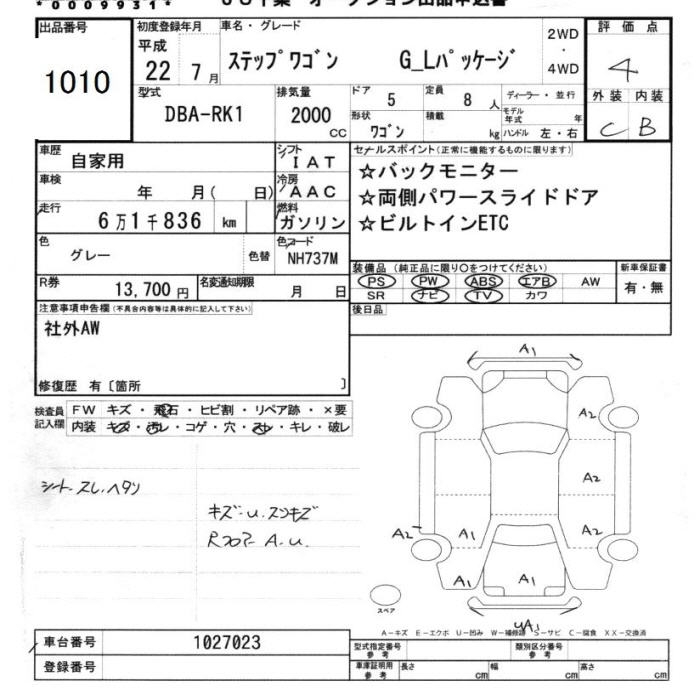 *00099931*
オークション出品申込書
出品番号
1010
初度登録年月
平成
22 7月
車名・グレード
ステップワゴン G_Lパッケージ
2WD
・
4WD
評価点
4
外装 内装
C B
型式
DBA-RK1
排気量
2000
CC
ドア
5
定員
8 人
ディーラー・並行
モデル年式 年
形状
ワゴン
積載
kg
ハンドル 左・右
車歴
自家用
シフト
IAT
車検
年 月( 日)
冷房
AAC
走行
6万1千836 km
燃料
ガソリン
色
グレー
色替
色コード
NH737M
R券
13,700円
名変通知期限
月 日
セールスポイント(正常に機能するものに限ります)
☆バックモニター
☆両側パワースライドドア
☆ビルトインETC
装備品(純正品に限り○をつけてください)
PS PW ABS エアB AW
SR ナビ TV カワ
新車保証書
有・無
後日品
注意事項申告欄(不具合内容等は具体的に記入して下さい)
社外AW
修復歴 有〔箇所 〕
検査員記入欄
FW キズ・飛石・ヒビ割・リペア跡・×要
内装 キズ・汚レ・コゲ・穴・スレ・キレ・破レ
シート スレ、ヘタリ
キズ・u、スリキズ
Rフロアー A.u.
A1
A2
A2
A2
A2
A1
A1
A1
スペア
A－キズ E－エクボ U－凹み W－補修跡 S－サビ C－腐食 XX－交換済
車台番号
1027023
登録番号
型式指定番号
参考
類別区分番号
参考
車庫証明用
参考
長さ cm
幅 cm
高さ cm